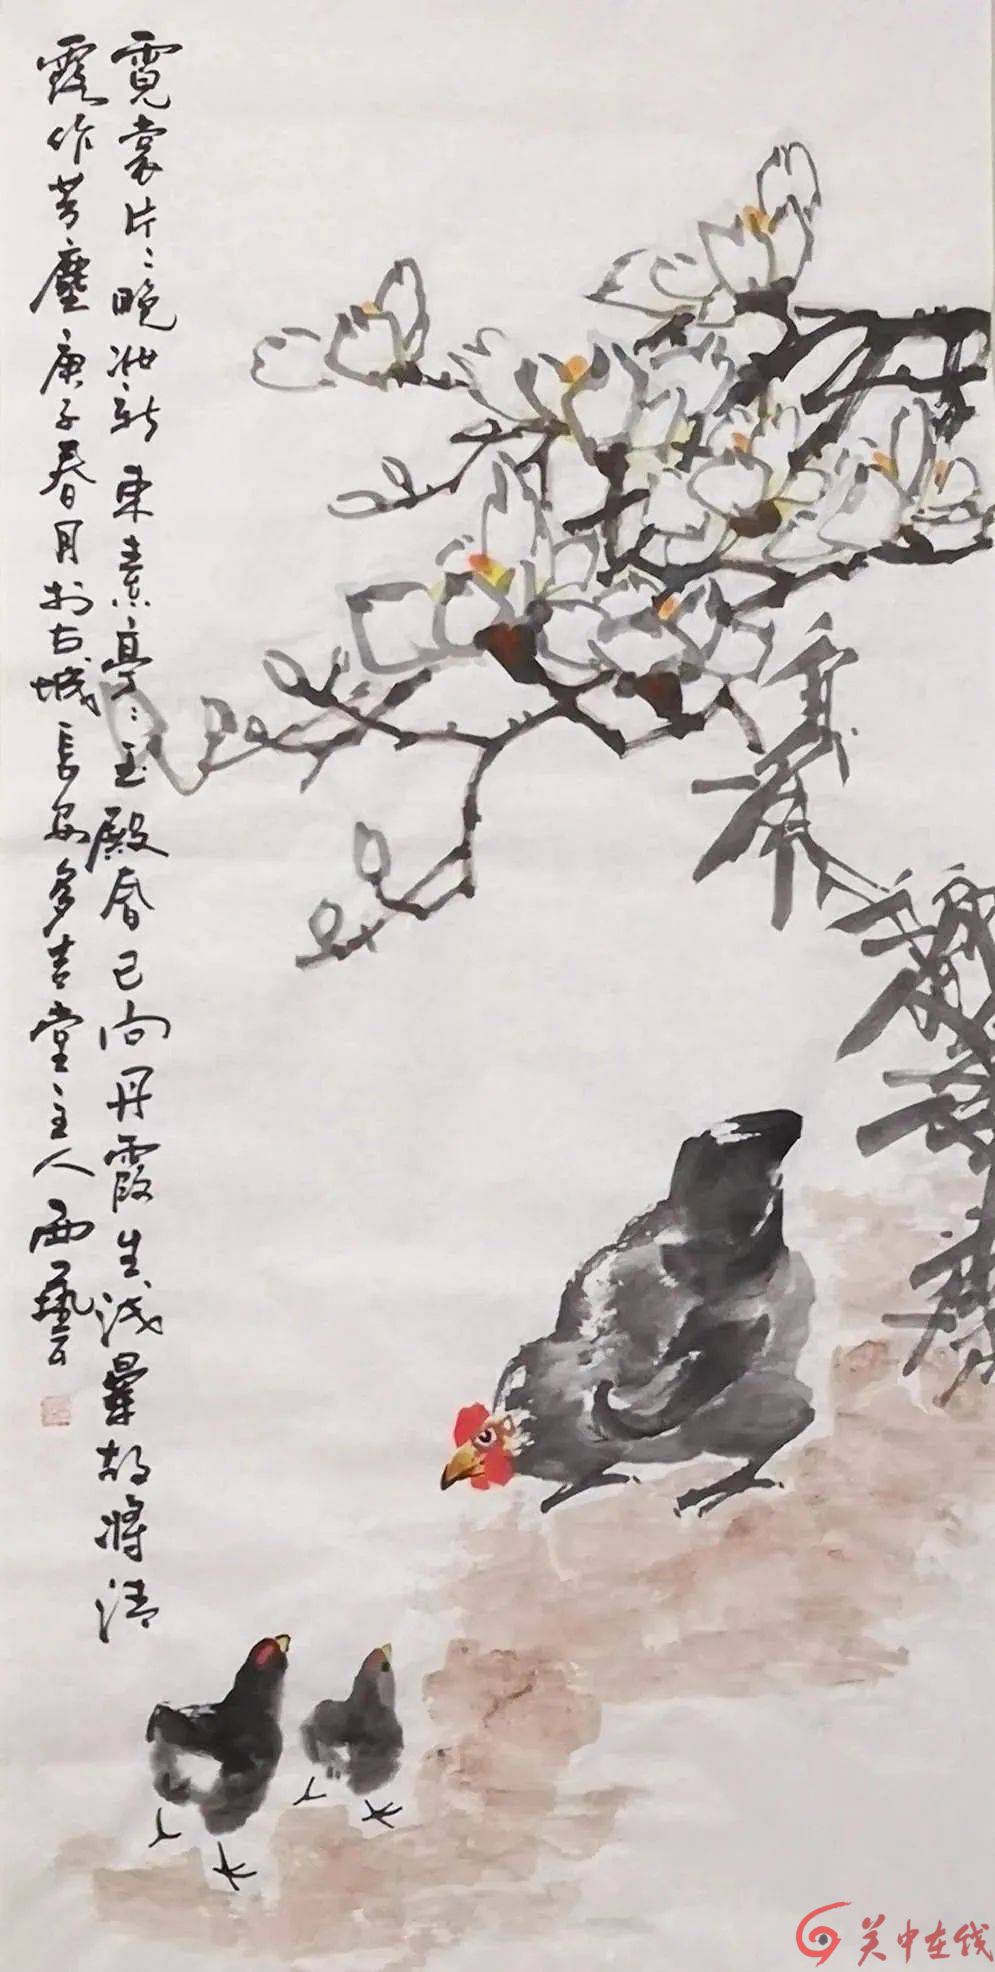 霓裳片片晚妆新束素亭亭玉殿春已向丹霞生浅晕故将清
露作芳尘庚子春月于古城长安多吉堂主人西艺云
关中在线